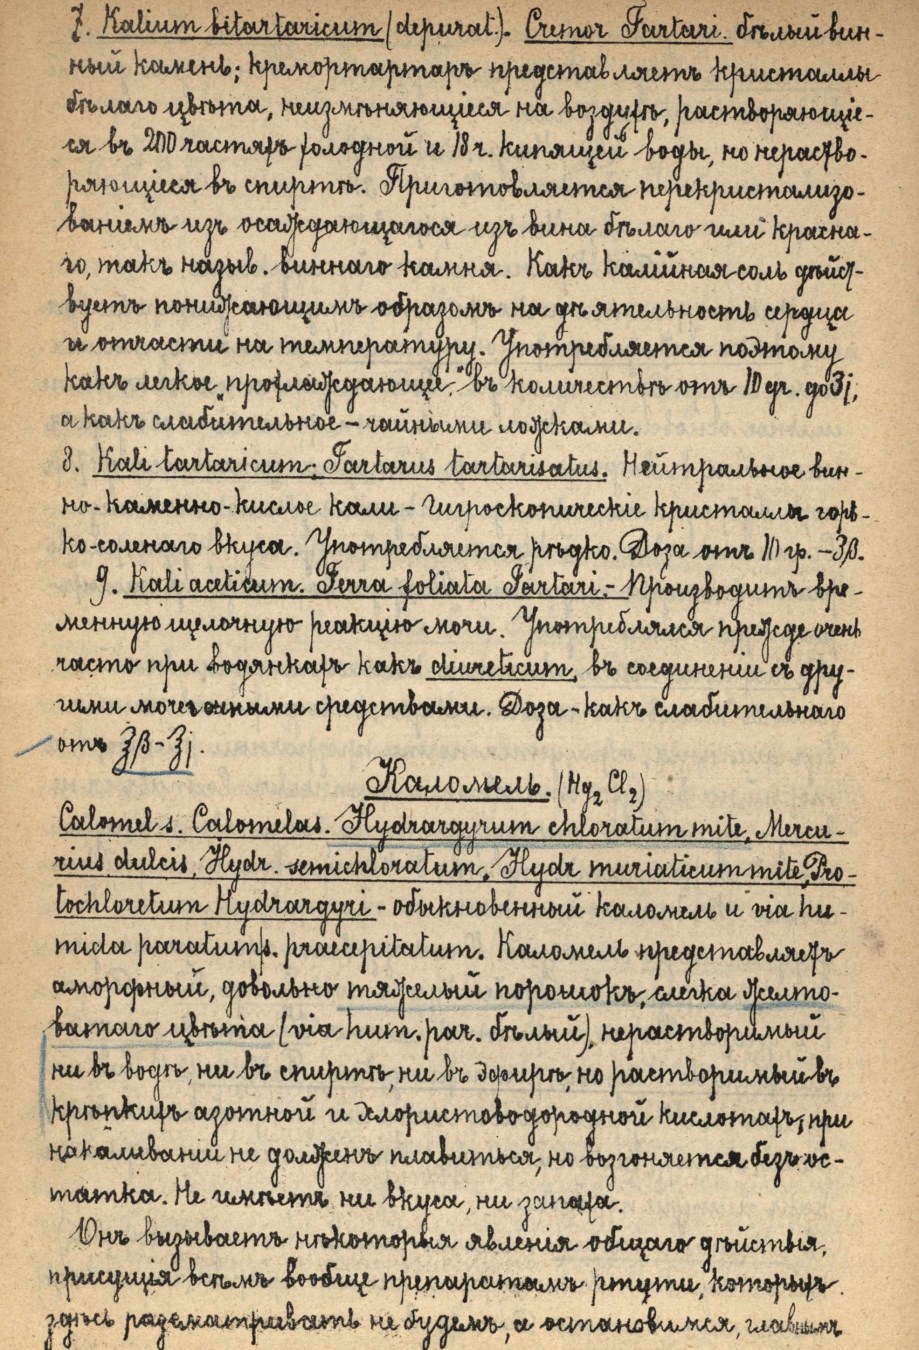 7. Kalium bitartaricum (depurat.). Cremor Tartari. бѣлый вин-
ный камень; кремортартаръ представляетъ кристаллы
бѣлаго цвѣта, неизмѣняющіеся на воздухѣ, растворяющіе-
ся въ 200 частяхъ холодной и 18 ч. кипящей воды, но нераство-
ряющіеся въ спиртѣ. Приготовляется перекристализо-
ваніемъ изъ осаждающагося изъ вина бѣлаго или красна-
го, такъ назыв. виннаго камня. Какъ калійная соль дѣйст-
вуетъ понижающимъ образомъ на дѣятельность сердца
и отчасти на температуру. Употребляется поэтому
какъ легкое „прохлаждающее“ въ количествѣ отъ 10 gr. до ʒj,
а какъ слабительное – чайными ложками.
8. Kali tartaricum; Tartarus tartarisatus. Нейтральное вин-
но-каменно-кислое кали – Гигроскопическіе кристаллы горь-
ко-соленаго вкуса. Употребляется рѣдко. Доза отъ 10 гр. – ʒβ.
9. Kali aceticum. Terra foliata Tartari. – Производитъ вре-
менную щелочную реакцію мочи. Употреблялся прежде очень
часто при водянкахъ какъ diureticum, въ соединеніи съ дру-
гими мочегонными средствами. Доза – какъ слабительнаго
отъ ℥β – ℥j.
Каломель. (Hg2 Cl2)
Calomel s. Calomelas. Hydrargyrum chloratum mite, Mercu-
rius dulcis, Hydr. semichloratum, Hydr muriaticum mite, Pro-
tochloretum Hydrargyri – обыкновенный каломель и via hu-
mida paratum s. praecepitatum. Каломель представляетъ
аморфный, довольно тяжелый порошокъ, слегка желто-
ватаго цвѣта (via hum. par. бѣлый), нерастворимый
ни въ водѣ, ни въ спиртѣ, ни въ эфирѣ, но растворимый въ
крѣпкихъ азотной и хлористоводородной кислотахъ; при
накаливаніи не долженъ плавиться, но возгоняется безъ ос-
татка. Не имѣетъ ни вкуса, ни запаха.
Онъ вызываетъ нѣкоторыя явленія общаго дѣйствія,
присущія всѣмъ вообще препаратамъ ртути, которыхъ
здѣсь разсматривать не будемъ, а остановимся, главнымъ